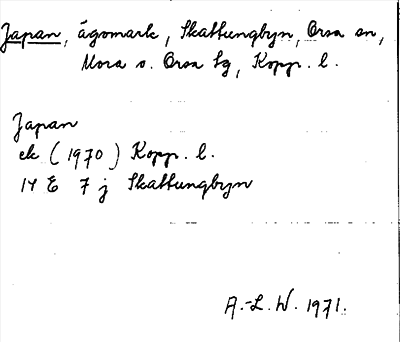 Japan, ägomark, Skattungbyn, Orsa sn,
Mora o. Orsa tg, Kopp. l.
Japan
ek (1970) Kopp. l.
14 E 7 j Skattungbyn
A.-L. W. 1971.